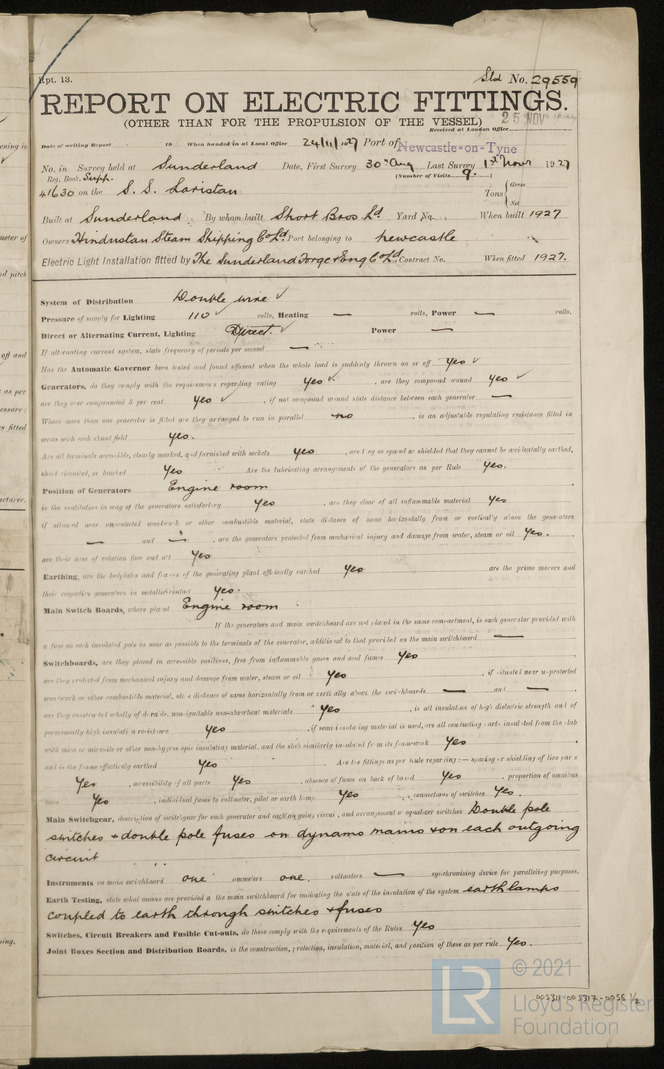 Rpt. 13.
Sld No. 29559
REPORT ON ELECTRIC FITTINGS.
(OTHER THAN FOR THE PROPULSION OF THE VESSEL)
25 NOV
Received at London Office
Date of writing Report 19 When handed in at Local Office 24/11/1927 Port of Newcastle-on-Tyne
No. in Survey held at Sunderland Date, First Survey 30th Aug Last Survey 1st Novr 1927
Reg. Book. Supp. (Number of Visits 9.)
41630 on the S.S. Laristan Tons Gross Net
Built at Sunderland By whom built Short Bros Ld Yard No. When built 1927
Owners Hindustan Steam Shipping Co Ld Port belonging to Newcastle
Electric Light Installation fitted by The Sunderland Forge & Eng Co Ld Contract No. When fitted 1927.
System of Distribution Double wire ✓
Pressure of supply for Lighting 110 ✓ volts, Heating — volts, Power — volts.
Direct or Alternating Current, Lighting Direct ✓ Power —
If alternating current system, state frequency of periods per second —
Has the Automatic Governor been tested and found efficient when the whole load is suddenly thrown on or off Yes ✓
Generators, do they comply with the requirements regarding rating Yes ✓, are they compound wound Yes ✓
are they over compounded 5 per cent. Yes ✓, if not compound wound state distance between each generator —
Where more than one generator is fitted are they arranged to run in parallel no, is an adjustable regulating resistance fitted in
series with each shunt field Yes.
Are all terminals accessible, clearly marked, and furnished with sockets Yes, are they so spaced or shielded that they cannot be accidentally earthed,
short circuited, or touched Yes Are the lubricating arrangements of the generators as per Rule Yes.
Position of Generators Engine room
is the ventilation in way of the generators satisfactory Yes, are they clear of all inflammable material Yes
if situated near unprotected woodwork or other combustible material, state distance of same horizontally from or vertically above the generators
— and —, are the generators protected from mechanical injury and damage from water, steam or oil Yes.
are their axes of rotation fore and aft Yes
Earthing, are the bedplates and frames of the generating plant efficiently earthed Yes are the prime movers and
their respective generators in metallic contact Yes.
Main Switch Boards, where placed Engine room
If the generators and main switchboard are not placed in the same compartment, is each generator provided with
a fuse on each insulated pole as near as possible to the terminals of the generator, additional to that provided on the main switchboard —
Switchboards, are they placed in accessible positions, free from inflammable gases and acid fumes Yes
are they protected from mechanical injury and damage from water, steam or oil Yes, if situated near unprotected
woodwork or other combustible material, state distance of same horizontally from or vertically above the switchboards — and —
are they constructed wholly of durable, non-ignitable non-absorbent materials Yes, is all insulation of high dielectric strength and of
permanently high insulation resistance Yes, if semi insulating material is used, are all conducting parts insulated from the slab
with mica or micanite or other non-hygroscopic insulating material, and the slab similarly insulated from its framework Yes
and is the frame effectively earthed Yes Are the fittings as per Rule regarding:— spacing or shielding of live parts
Yes, accessibility of all parts Yes, absence of fuses on back of board Yes, proportion of omnibus
bars Yes, individual fuses to voltmeter, pilot or earth lamp Yes, connections of switches Yes.
Main Switchgear, description of switchgear for each generator and each outgoing circuit, and arrangement of equalizer switches Double pole
switches & double pole fuses on dynamo mains & on each outgoing
circuit
Instruments on main switchboard one ammeters one. voltmeters — synchronising device for paralleling purposes.
Earth Testing, state what means are provided at the main switchboard for indicating the state of the insulation of the system earth lamps
coupled to earth through switches & fuses
Switches, Circuit Breakers and Fusible Cut-outs, do these comply with the requirements of the Rules Yes
Joint Boxes Section and Distribution Boards, is the construction, protection, insulation, material, and position of these as per rule Yes.
© 2021
LR Lloyd's Register
Foundation
005311-005317-0058 1/2